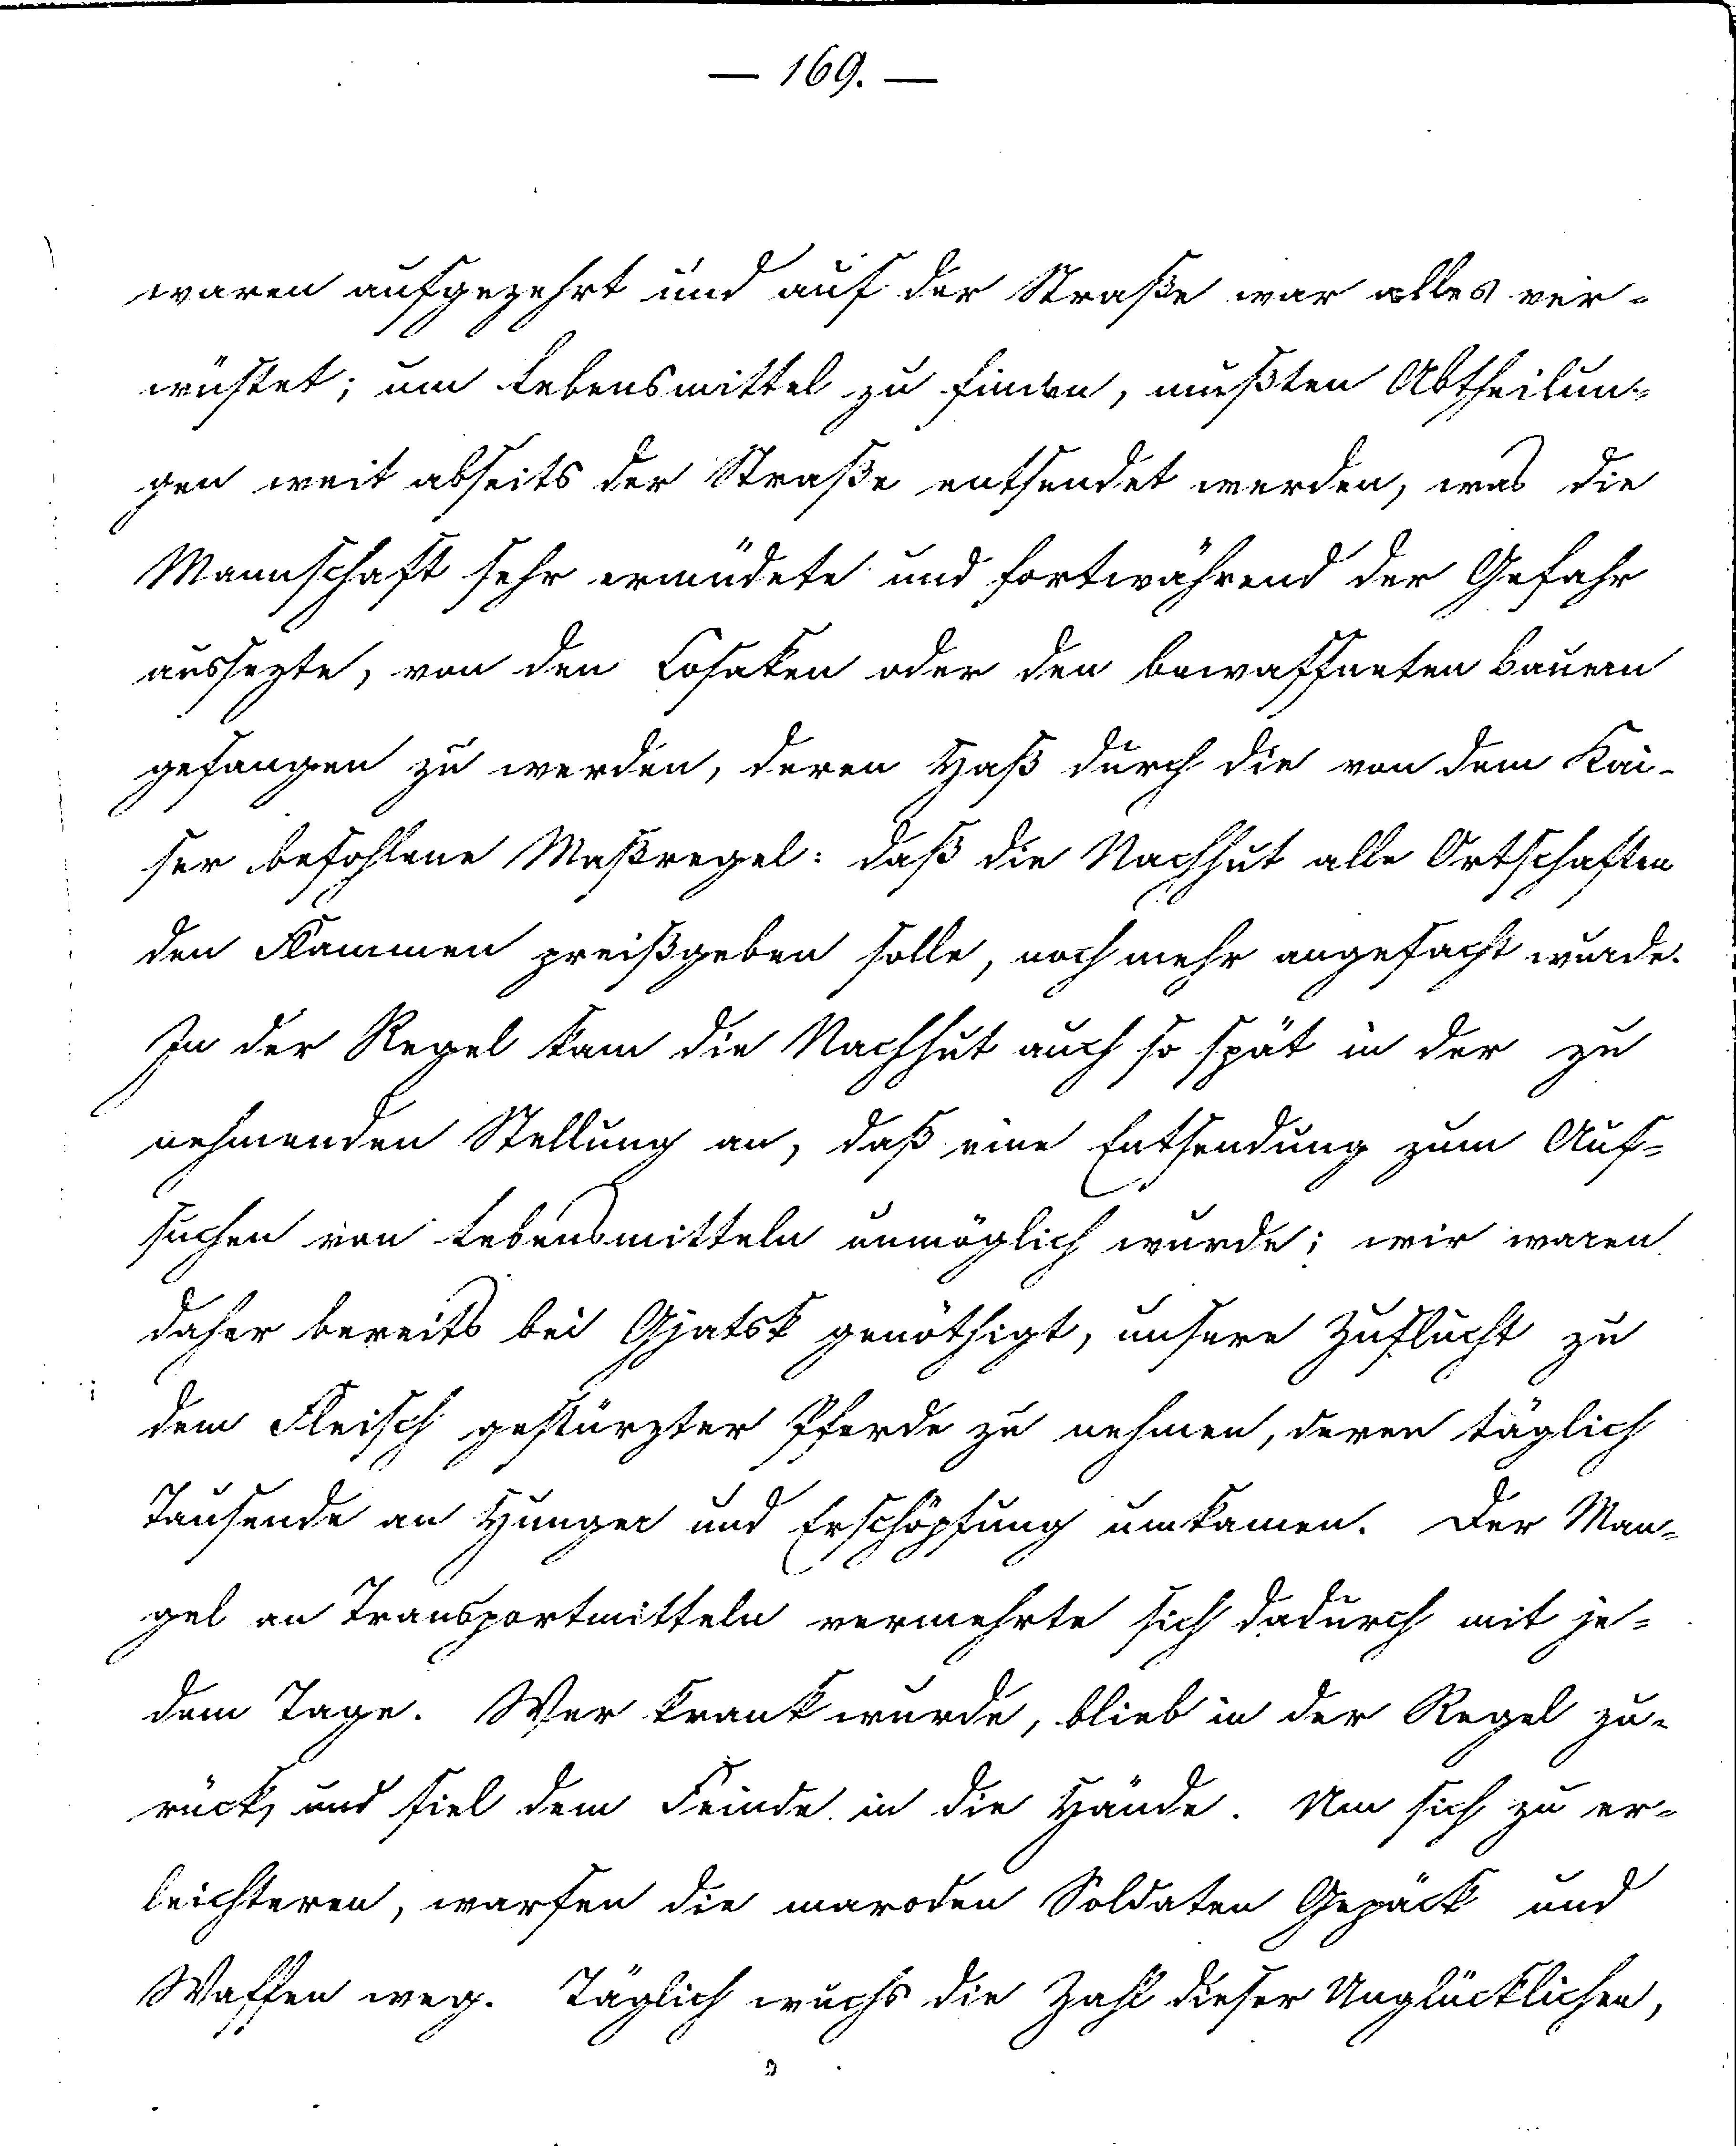 — 169. —
waren aufgezehrt und auf der Straße war alles ver-
wüstet; um Lebensmittel zu finden, mußten Abtheilun-
gen weit abseits der Straße entsendet werden, was die
Mannschaft sehr ermüdete und fortwährend der Gefahr
aussezte, von den Cosaken oder den bewaffneten Bauern
gefangen zu werden, deren Haß durch die von dem Kai-
ser befohlene Maßregel: daß die Nachhut alle Ortschaften
den Flammen preißgeben solle, noch mehr angefacht wurde.
In der Regel kam die Nachhut auch so spät in der zu
nehmenden Stellung an, daß eine Entsendung zum Auf-
suchen von Lebensmitteln unmöglich wurde; wir waren
daher bereits bei Gjatsk genöthigt, unsere Zuflucht zu
dem Fleisch gestürzter Pferde zu nehmen, deren täglich
Tausende an Hunger und Erschöpfung umkamen. Der Man-
gel an Transportmitteln vermehrte sich dadurch mit je-
dem Tage. Wer krank wurde, blieb in der Regel zu-
rück, und fiel dem Feinde in die Hände. Um sich zu er-
leichteren, warfen die maroden Soldaten Gepäck und
Waffen weg. Täglich wuchs die Zahl dieser Unglücklichen,